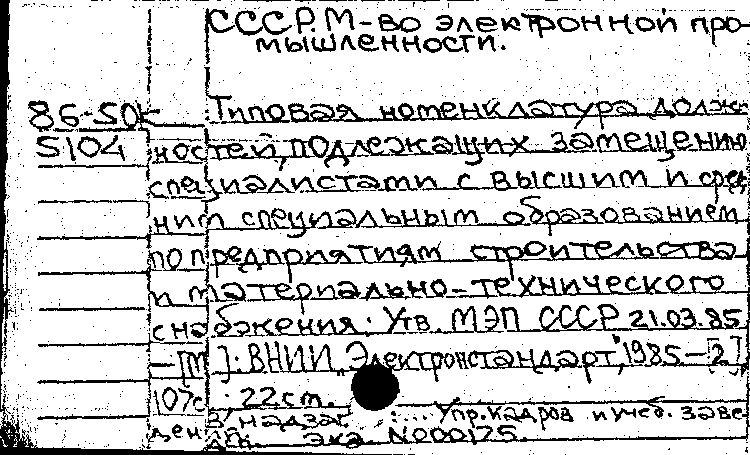 СССР. М-во электронной про-
мышленности.
86-50к Типовая номенклатура долж-
5104 ностей, подлежащих замещению
специалистами с высшим и сред-
ним специальным образованием
по предприятиям строительства
и материально-технического
снабжения: Утв. МЭП СССР 21.03.85
—[М]: ВНИИ „Электронстандарт", 1985.—[2],
107с.; 22см.
В надзаг.: ... Упр. кадров и учеб. заве-
ден. Экз. №000175.